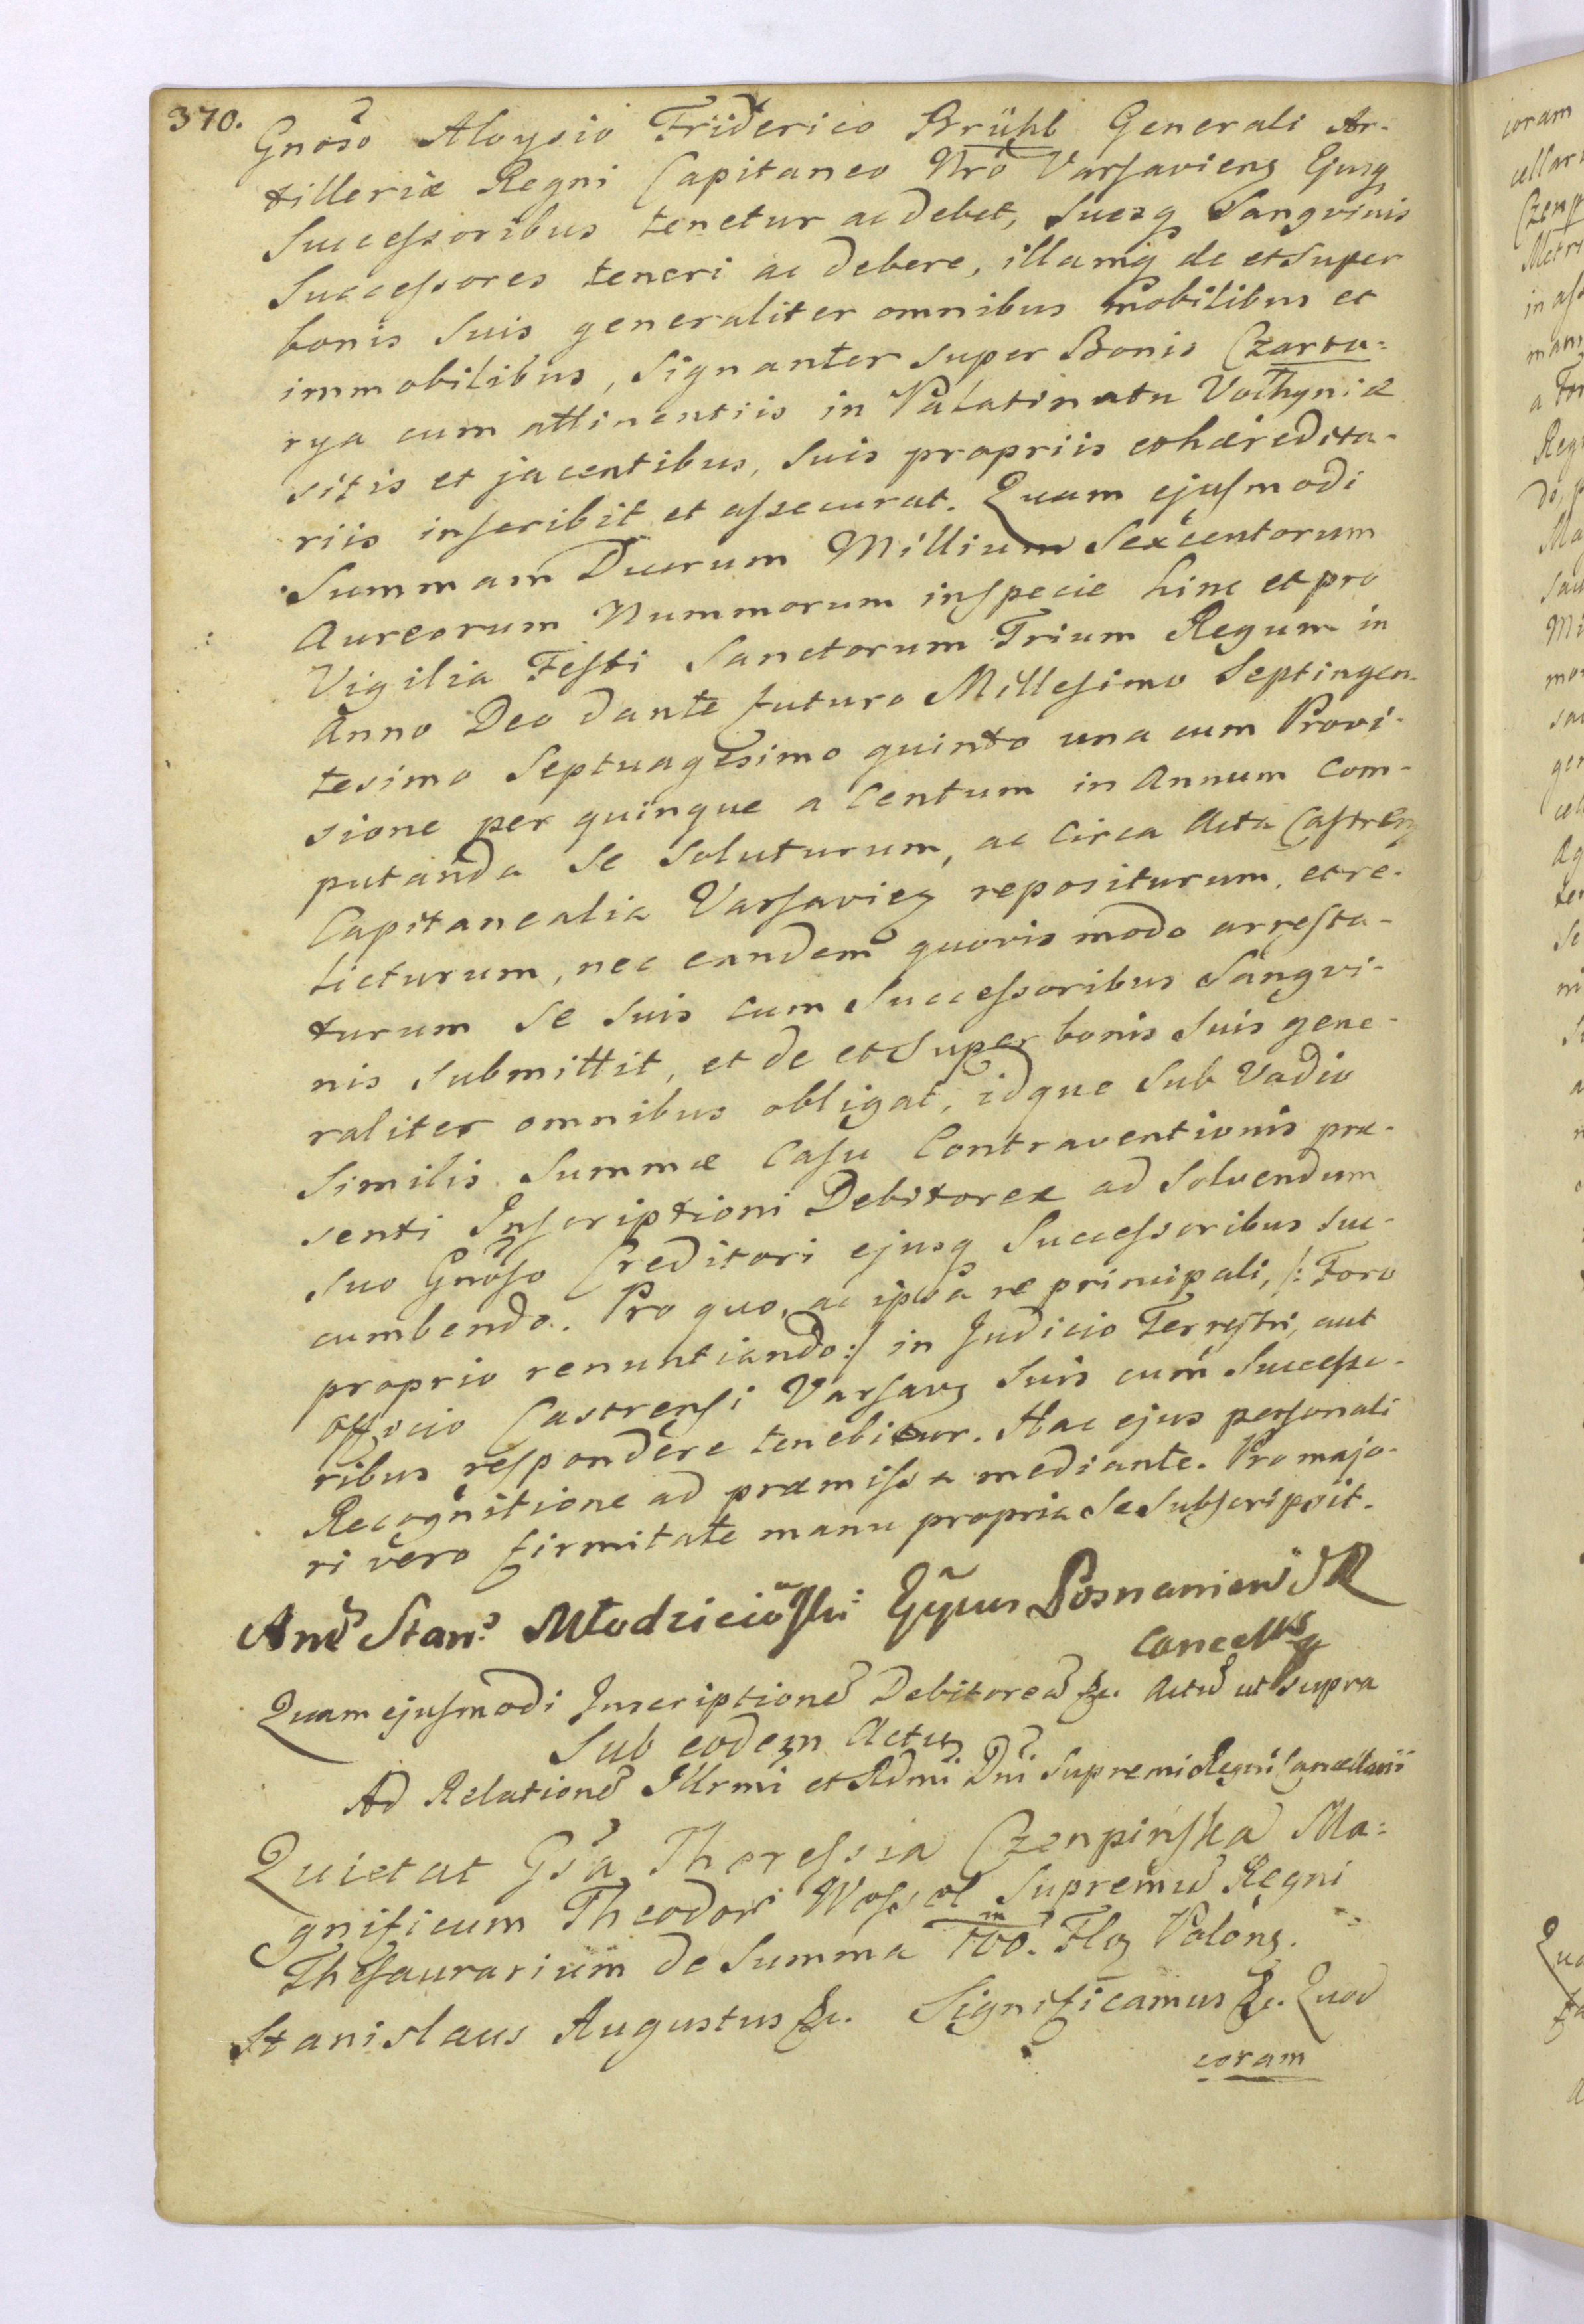 370.
Gnoso Aloysio Friderico Brühl Generali Ar-
tilleriæ Regni Capitaneo Nro Varsaviens Ejusq
Successoribus tenetur ac debet, Suosq Sangvinis
Successores teneri ac debere, illamq de et Super
bonis Suis generaliter omnibus mobilibus et
immobilibus, Signanter Super Bonis Czarto=
rya cum attinentiis in Palatinatu Volhyniæ
sitis et jacentibus, Suis propriis et hæredita-
riis inscribit et assecurat. Quam ejusmodi
Summam Duorum Millium Sexcentorum
Aureorum Nummorum in specie hinc et pro
Vigilia Festi Sanctorum Trium Regum in
Anno Deo dante futuro Millesimo Septingen-
tesimo Septuagesimo quinto una cum Provi-
sione per quinque a Centum in Annum Com-
putanda Se Soluturum, ac Circa Acta Castren
Capitanealia Varsavien repositurum, et re-
licturum, nec eandem quovis modo arresta-
turum Se Suis cum Successoribus Sangvi-
nis Submittit, et de et Super bonis Suis gene-
raliter omnibus obligat, idque Sub Vadio
Similis Summæ Casu Contraventionis præ-
senti Inscriptioni Debitoreæ ad Solvendum
Suo Gnoso Creditori ejusq Successoribus suc-
cumbendo. Pro quo, ac ipsa re principali, /: Foro
proprio renuntiando :/ in Judicio Terrestri, aut
Officio Castrensi Varsavs Suis cum Successo-
ribus respondere tenebitur. Hac ejus personali
Recognitione ad præmissa mediante. Pro majo-
ri vero firmitate manu propria Se Subscripsit.
And Stan: Młodzieio͠ski Epus Posnanien SR
Cancellus
Quam ejusmodi Inscriptione Debitorea &c. Actu ut Supra
Sub eodem Actu
Ad Relatione Illrmi et Rdmi Dni Supremi Regni Cancellarii
Quietat Gsa Theressia Czenpińska Ma=
gnificum Theodor Wessel Supremu Regni
Thesaurarium de Summa 100. m Flor Polons.
Stanislaus Augustus &c. Significamus &c. Quod
coram